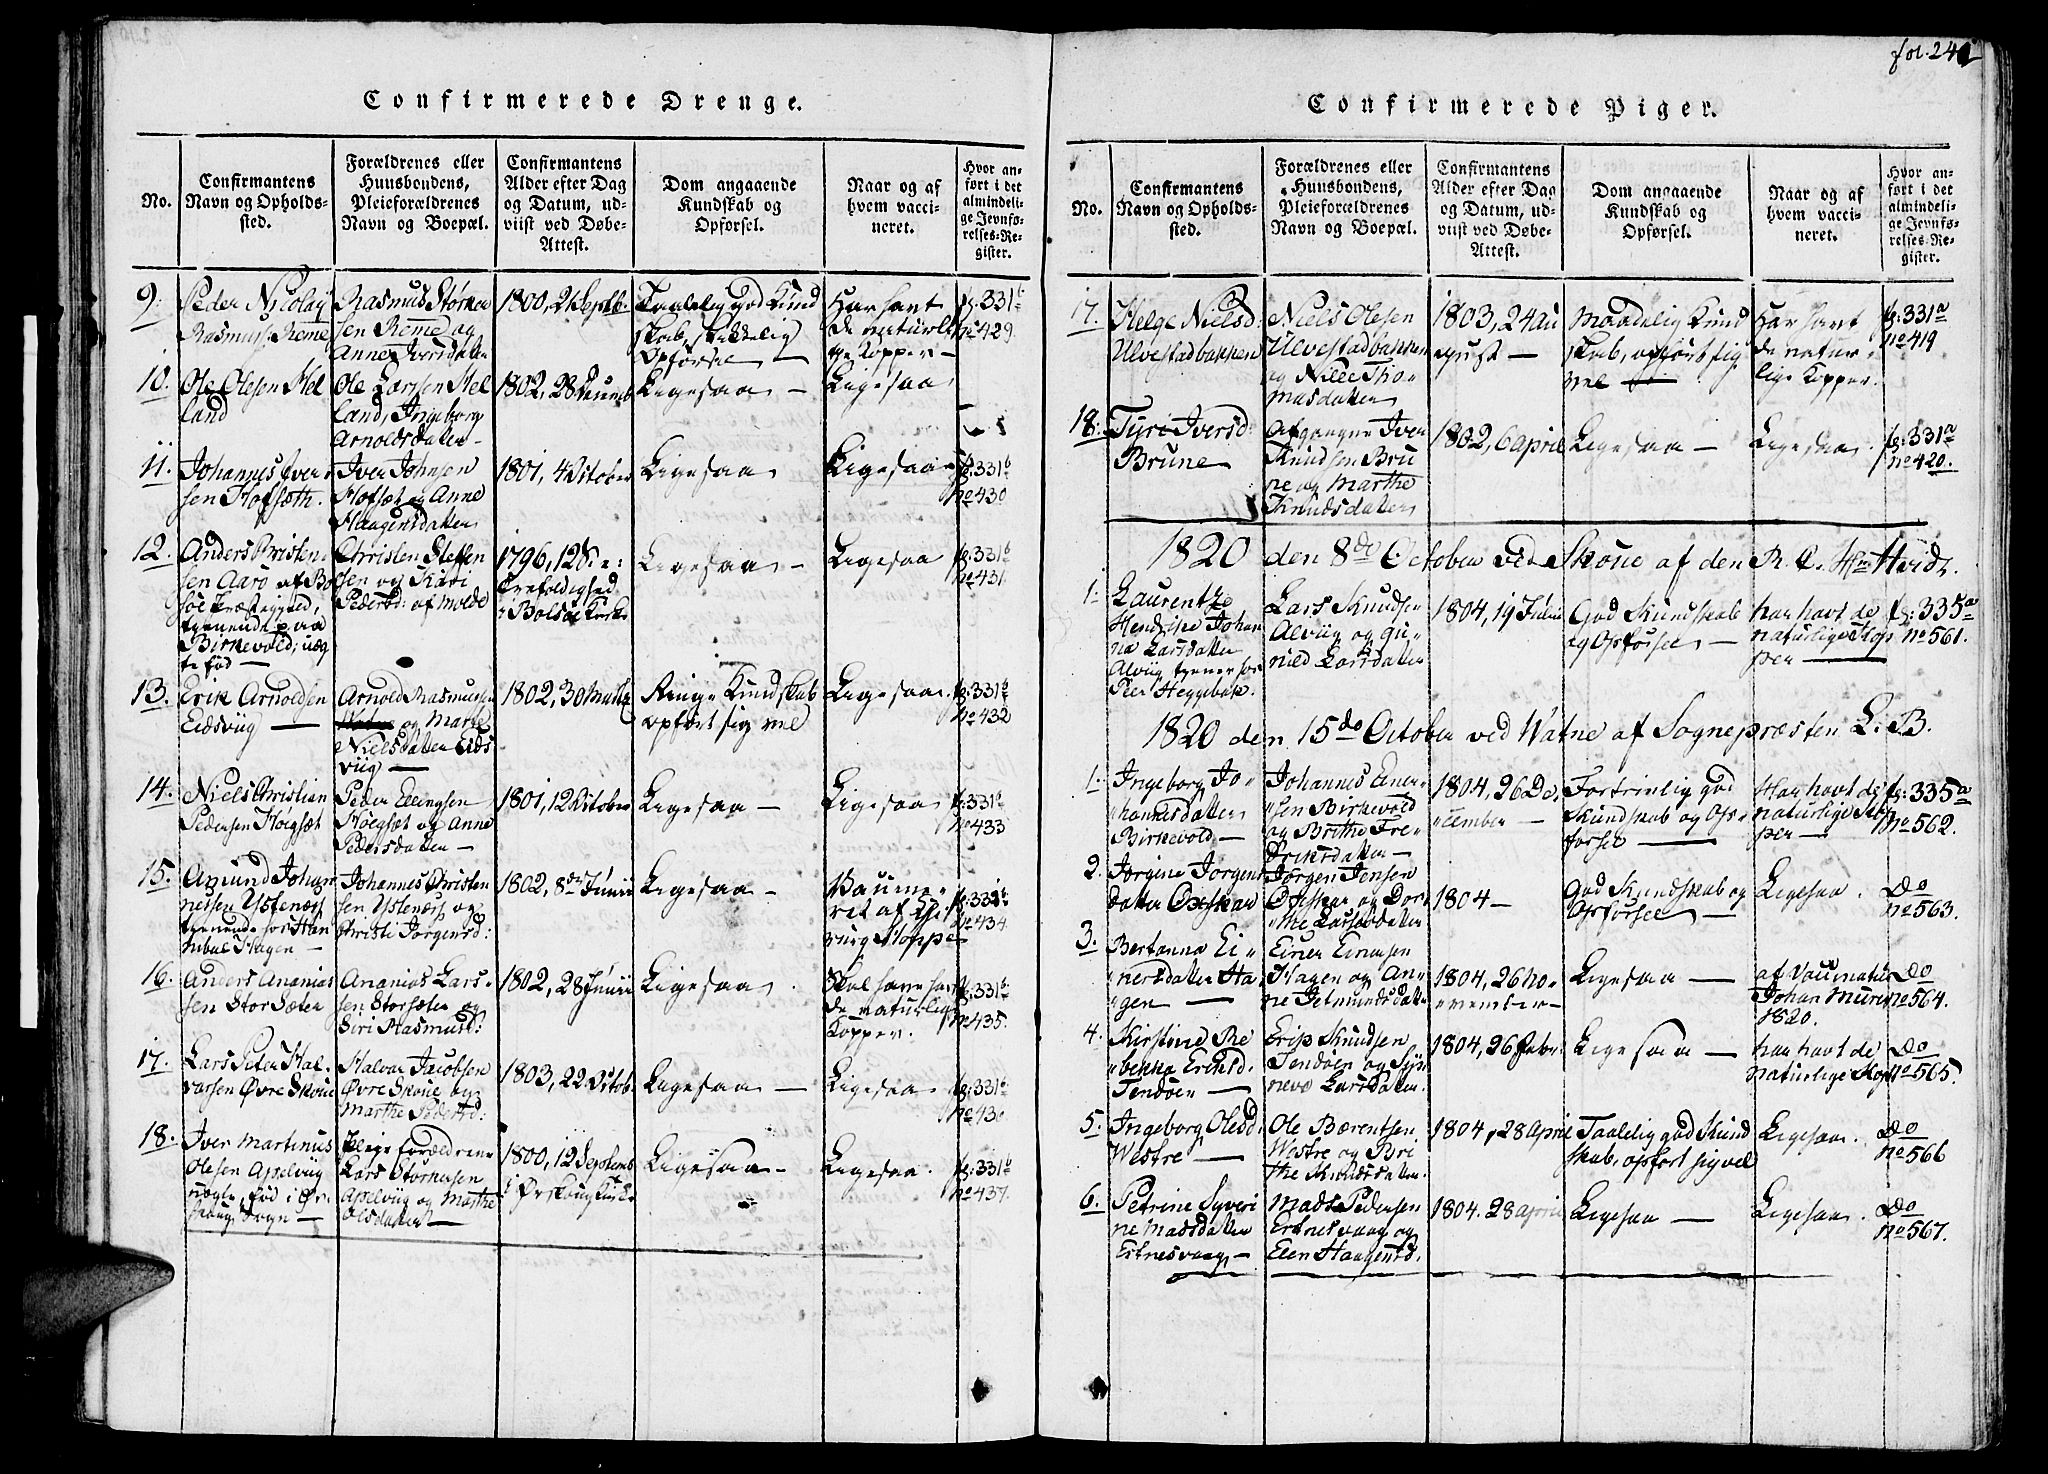 Confirmerede Drenge.
No.
Confirmantens
Navn og Opholds-
sted.
Forældrenes eller
Huusbondens,
Pleieforældrenes
Navn og Boepæl.
Confirmantens
Alder efter Dag
og Datum, ud-
viist ved Døbe-
Attest.
Dom angaaende
Kundskab og
Opførsel.
Naar og af
hvem vacci-
neret.
Hvor an-
ført i det
almindeli-
ge Jevnfø-
relses-Re-
gister.
9.
Peder Nicolay
Rasmuss. Reme
Rasmus Størker
sen Reme og
Anne Iversdatter
1800, 21 Septb.
Taalelig god Kund
skab, skikkelig
Opførsel —
Har havt
de naturli
ge Kopper —
fg: 331b
No 429.
10.
Ole Olesen Hel
land
Ole Larssen Hel
land, Ingeborg
Arnoldsdatter —
1802, 28
Ligesaa —
Ligesaa
11.
Johannes Iver
sen Hofsæth.
Iver Johnsen
Hofsæt og Anne
Haagensdatter
1801, 4 October
Ligesaa
Ligesaa
fg: 331b
No 430
12.
Anders Christen-
sen Aarø af Bol
søe Præstegjeld,
tjenende paa
Birkevold; uæg
te fød —
Christen Steffen
sen og Kari
Pedersd: af Molde
1796, 12 S. e:
Trefoldighed
i Bolsøe Kirke
Ligesaa —
Ligesaa
fg: 331b
No 431.
13.
Erik Arnoldsen
Eidsviig —
Arnold Rasmussen
og Marte
Nielsdatter Eids
viig —
1802, 30 Martz
Ringe Kundskab
opført sig vel
Ligesaa.
fg: 331b
No 432
14.
Niels Christian
Pedersen Høigsæt
Peder Ellingsen
Høegsæt og Anne
Pedersdatter —
1801, 12 October
Ligesaa —
Ligesaa
fg: 331b
No 433
15.
Amund Johan
nessen Ystenæss
tjenende hos Han
nibal Hagen —
Johannes Christen
sen Ystenæss og
Christi Jørgensd:
1802, 8de Junii
Ligesaa —
Vaccine-
ret af
Hoppe
fg: 331b
No 434
16.
Anders Ananias
sen Stor Sæter
Ananias Lars-
sen Storsæter og
Siri Rasmusd:
1802, 28 Junii
Ligesaa.
Skal have havt
de naturlige
Kopper.
fg: 331b
No 435.
17.
Lars Peter Hal-
varsen Øvre Skoue
Halvar Jacobsen
Øvre Skoue og
Marthe Pedersd:
1803, 22 Octob.
Ligesaa —
Ligesaa
fg: 331b
18.
Iver Martinus
Olesen Apelviig
uægte, fød i Ør-
skoug Sogn —
Pleie forældrene
Lars Størkersen
Apelviig og Marthe
Olsdatter —
1800, 12 Septemb
i Ørskoug Kirke
Ligesaa —
Ligesaa.
fg: 331b
No 437.
fol. 241
Confirmerede Piger.
No.
Confirmantens
Navn og Opholds-
sted.
Forældrenes eller
Huusbondens,
Pleieforældrenes
Navn og Boepæl.
Confirmantens
Alder efter Dag
og Datum, ud-
viist ved Døbe-
Attest.
Dom angaaende
Kundskab og
Opførsel.
Naar og af
hvem vacci-
neret.
Hvor an-
ført i det
almindeli-
ge Jevnfø-
relses-Re-
gister.
17.
Helge Nielsd:
Ulvestadbakken
Niels Olesen
Ulvestadbakken
og Nille Tho-
masdatter
1803, 24 Au
gust —
Maadelig Kund
skab, opført sig
vel —
Har havt
de natur-
lige Kopper.
fg: 331a
No 419
18.
Tyri Iversd:
Brune
Afgangne Iver
Knudsen Bru
ne og Marthe
Knudsdatter
1802, 6 April
Ligesaa —
Ligesaa.
fg: 331a
No 420.
1820 den 8de October ved Skoue af den R. C. Hr. Hvidt.
1.
Laurentze
Hendrike Johan
na Larsdatter
Alviig tjener hos
Peer Heggebak.
Lars Knudsen
Alviig og Gu-
nild Larsdatter
1804, 19 Juni
God Kundskab
og Opførsel —
har havt de
naturlige Kop
per —
fg: 335a
No 561.
1820 den 15de October ved Watne af Sognepræsten L. B.
1.
Ingeborg Jo-
hannesdatter
Birkevold —
Johannes Ener-
sen Birkevold
og Brithe Fre-
drichsdatter —
1804, 26 De-
cember —
Fortrinlig god
Kundskab og Op-
førsel —
Har havt de
naturlige Kop
per —
fg: 335a
No 562.
2.
Jørgine Jørgens
datter Øxskar
Jørgen Jensen
Øxskar og Dor-
the Larsdatter
1804 —
God Kundskab og
Opførsel —
Ligesaa.
Do
No 563.
3.
Bertanna Ei-
nersdatter Ha-
gen —
Einer Einersen
Hagen og An-
ne Jetmundsdatter
1804, 26 No-
vember —
Ligesaa —
af Vaccinateur
Johan Muren
1820.
Do
No 564.
4.
Kirstine Re
bekka Erichsd.
Tendøen —
Erik Knudsen
Tendøen og Syn
neve Larsdatter.
1804, 26 Febr.
Ligesaa —
har havt de
naturlige Kop
Do
No 565.
5.
Ingeborg Olesd:
Westre —
Ole Bærentsen
Westre og Bri
the Knudsdatter.
1804, 28 April
Taalelig god Kund
skab, opført sig vel
Ligesaa.
Do
No 566
6.
Petrine Syveri
ne Madsdatter
Estnesvaag —
Mads Pedersen
Estnesvaag og
Elen Haagensd.
1804. 28 April
Ligesaa —
Ligesaa.
Do
No 567.